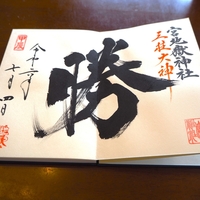 宮地嶽神社
三柱大神
勝
令和二年
十月四日